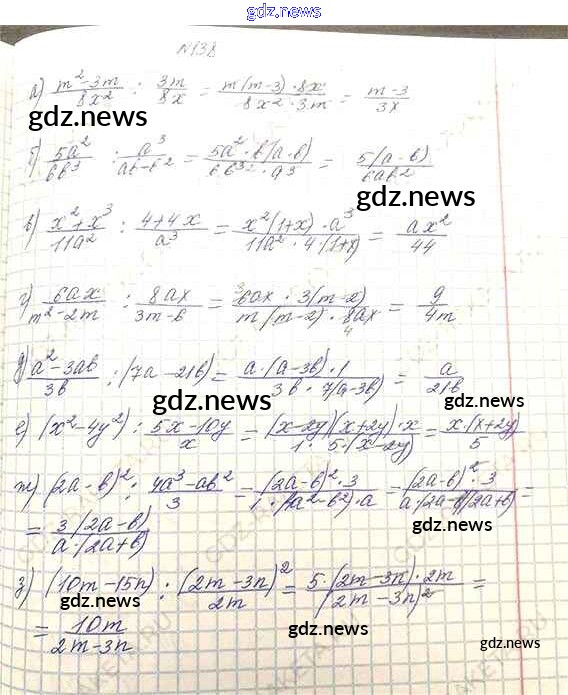 gdz.ru
№138
а) (m²-3m)/(8x²) : (3m)/(8x) = (m(m-3)·8x)/(8x²·3m) = (m-3)/(3x)
gdz.ru
б) (5a²)/(6b³) : (a³)/(ab-b²) = (5a²·b(a-b))/(6b³·a³) = (5(a-b))/(6ab²)
gdz.ru
в) (x²+x³)/(11a²) : (4+4x)/(a³) = (x²(1+x)·a³)/(11a²·4(1+x)) = (ax²)/(44)
г) (6ax)/(m²-2m) : (8ax)/(3m-6) = (6ax·3(m-2))/(m(m-2)·8ax) = (9)/(4m)
д) (a²-3ab)/(3b) : (7a-21b) = (a·(a-3b)·1)/(3b·7(a-3b)) = (a)/(21b)
gdz.ru
gdz.ru
е) (x²-4y²) : (5x-10y)/(x) = ((x-2y)(x+2y)·x)/(1·5·(x-2y)) = (x·(x+2y))/(5)
ж) (2a-b)² : (4a³-ab²)/(3) = ((2a-b)²·3)/(1·(4a²-b²)·a) = ((2a-b)²·3)/(a·(2a-b)(2a+b)) =
gdz.ru
= (3(2a-b))/(a·(2a+b))
з) (10m-15n) : ((2m-3n)²)/(2m) = (5·(2m-3n)·2m)/((2m-3n)²) =
gdz.ru
gdz.ru
= (10m)/(2m-3n)
gdz.ru